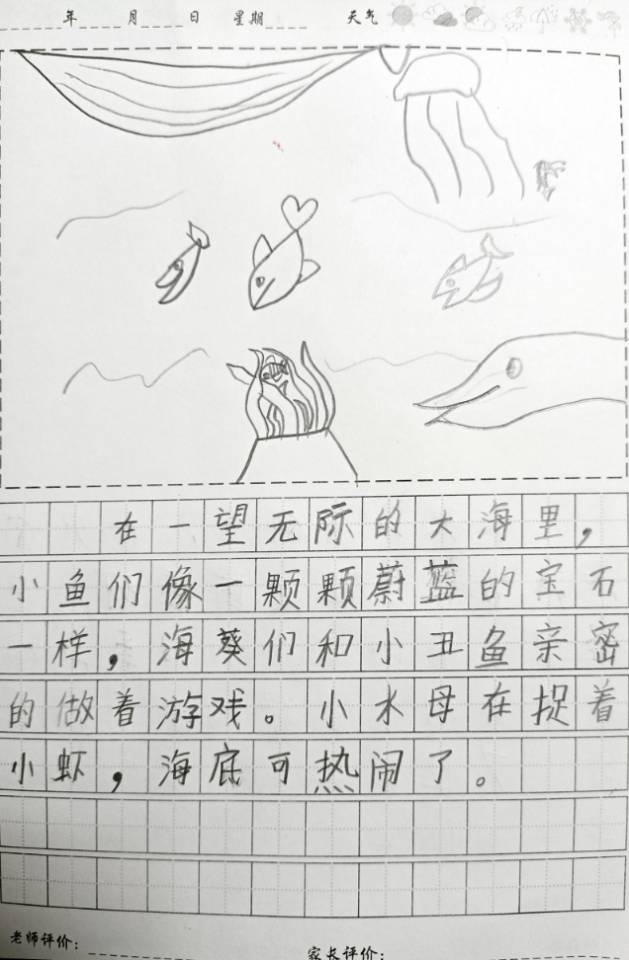 年 月 日 星期 天气
在一望无际的大海里，
小鱼们像一颗颗蔚蓝的宝石
一样，海葵们和小丑鱼亲密
的做着游戏。小水母在捉着
小虾，海底可热闹了。
老师评价： 家长评价：